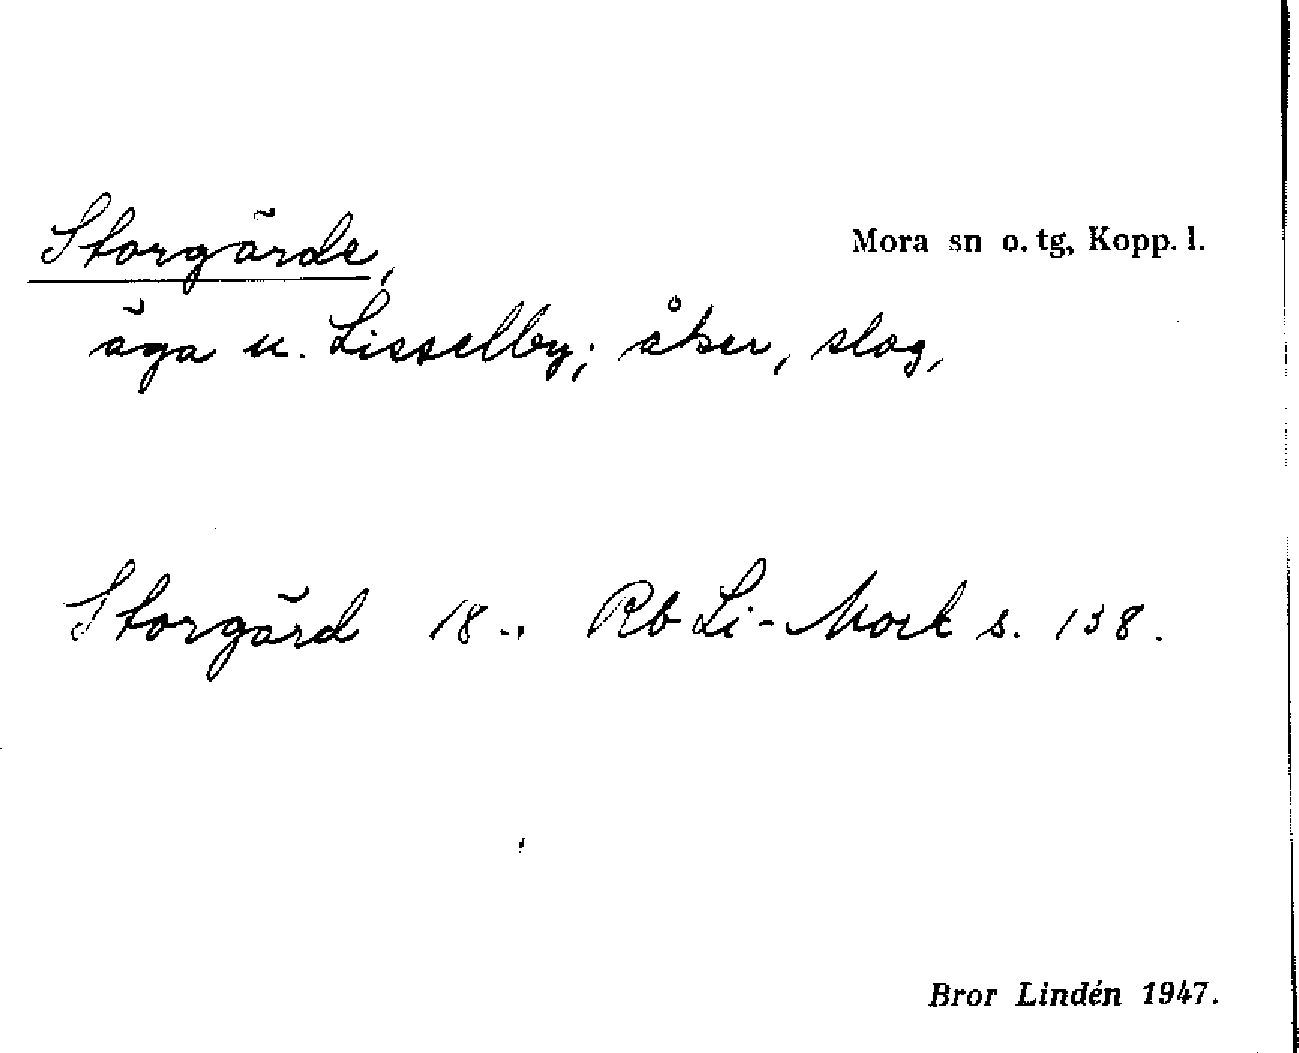 Storgärde,
Mora sn o. tg, Kopp. l.
äga u. Lisselby; åker, slog,
Storgärd 18.. Rb Li-Mork s. 138.
Bror Lindén 1947.